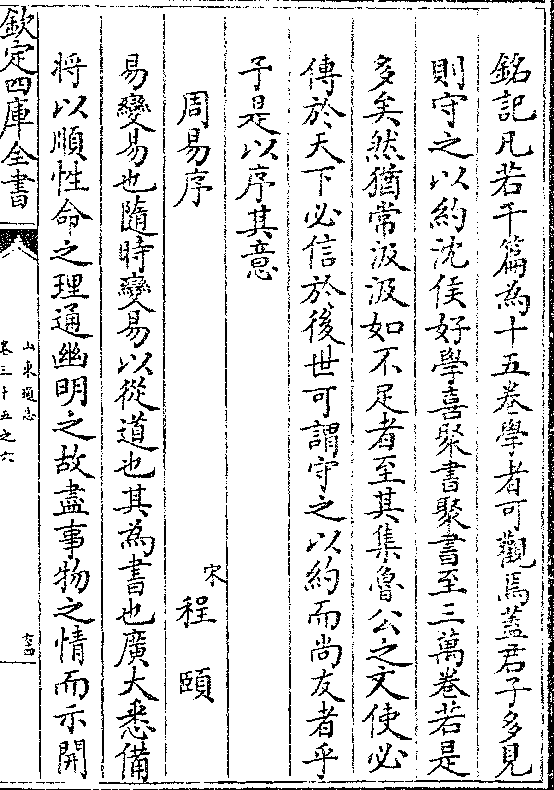 銘記凡若干篇為十五卷學者可觀焉蓋君子多見
則守之以約沈侯好學喜聚書聚書至三萬卷若是
多矣然猶常汲汲如不足者至其集魯公之文使必
傳於天下必信於後世可謂守之以約而尚友者乎
于是以序其意
周易序
宋程頤
易變易也隨時變易以從道也其為書也廣大悉備
將以順性命之理通幽明之故盡事物之情而示開
欽定四庫全書
山東通志
卷三十五之六